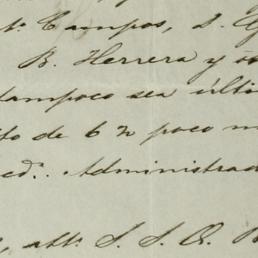 Campos, D.
B. Herrera y
tampoco sea últi
to de 6 n poco m
ed. Administrad
att. S. S. Q. B